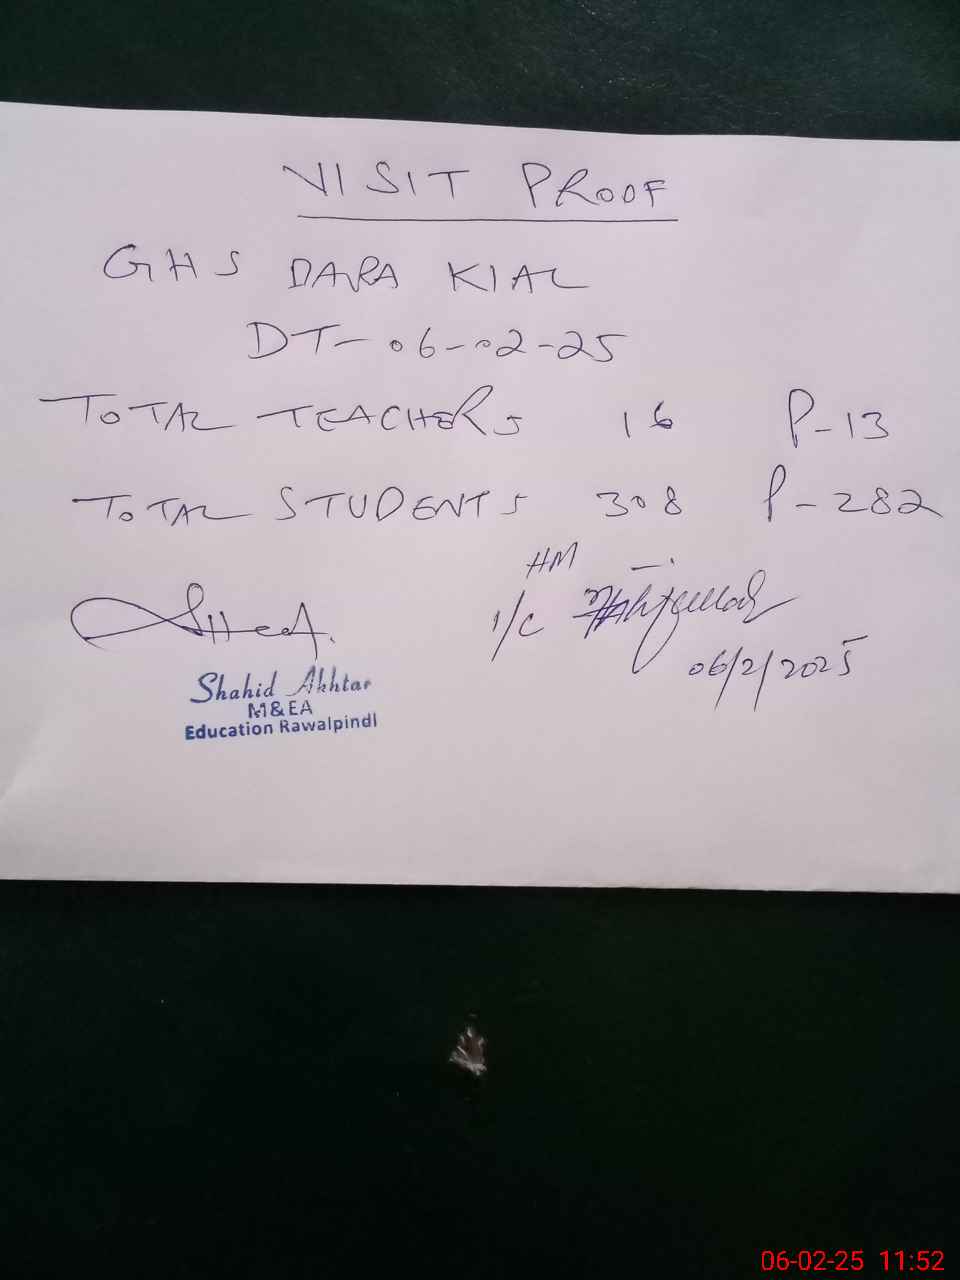 VISIT PROOF
GHS DARA KIAL
DT-06-02-25
TOTAL TEACHERS 16 P-13
TOTAL STUDENTS 308 P-282
HM
I/C
06/2/2025
Shahid Akhtar
M&EA
Education Rawalpindi
06-02-25 11:52